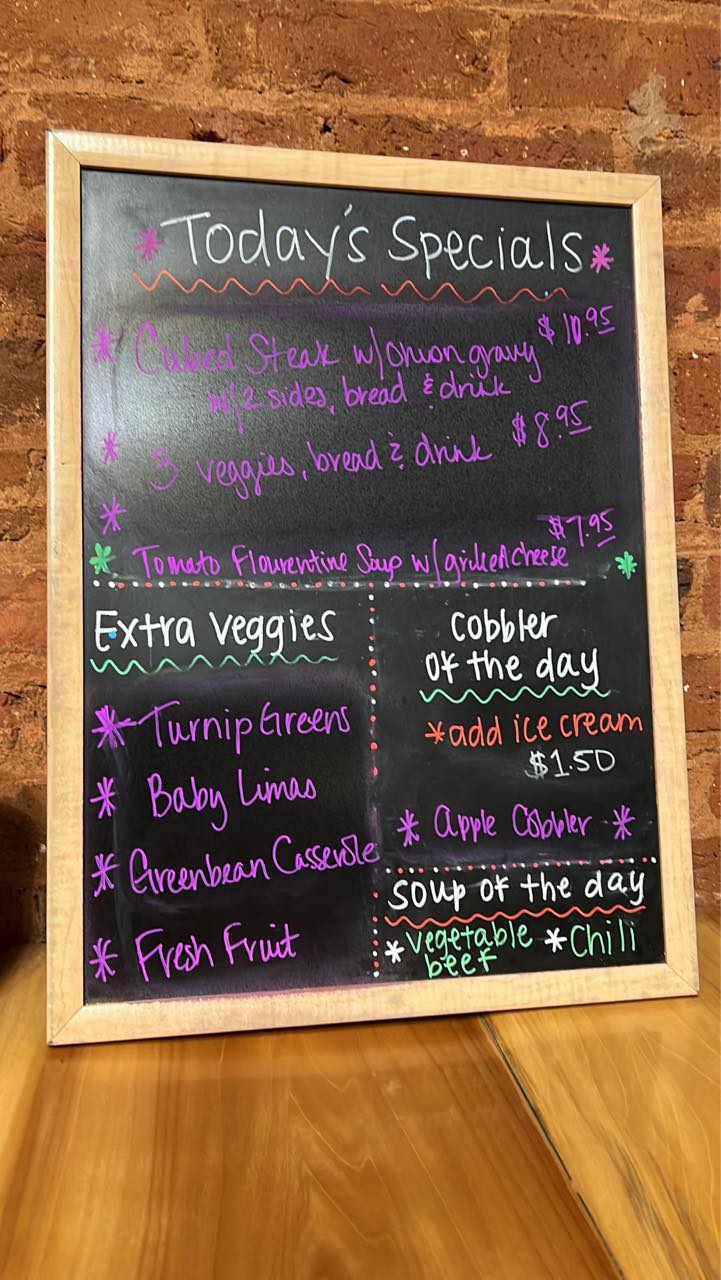 * Today's Specials *
* Cubed Steak w/onion gravy $10.95
w/2 sides, bread & drink
* 3 veggies, bread & drink $8.95
*
* Tomato Flourentine Soup w/grilled cheese $7.95 *
Extra Veggies
* Turnip Greens
* Baby Limas
* Greenbean Casserole
* Fresh Fruit
Cobbler
of the day
*add ice cream
$1.50
* Apple Cobbler *
Soup of the day
*Vegetable *Chili
beef